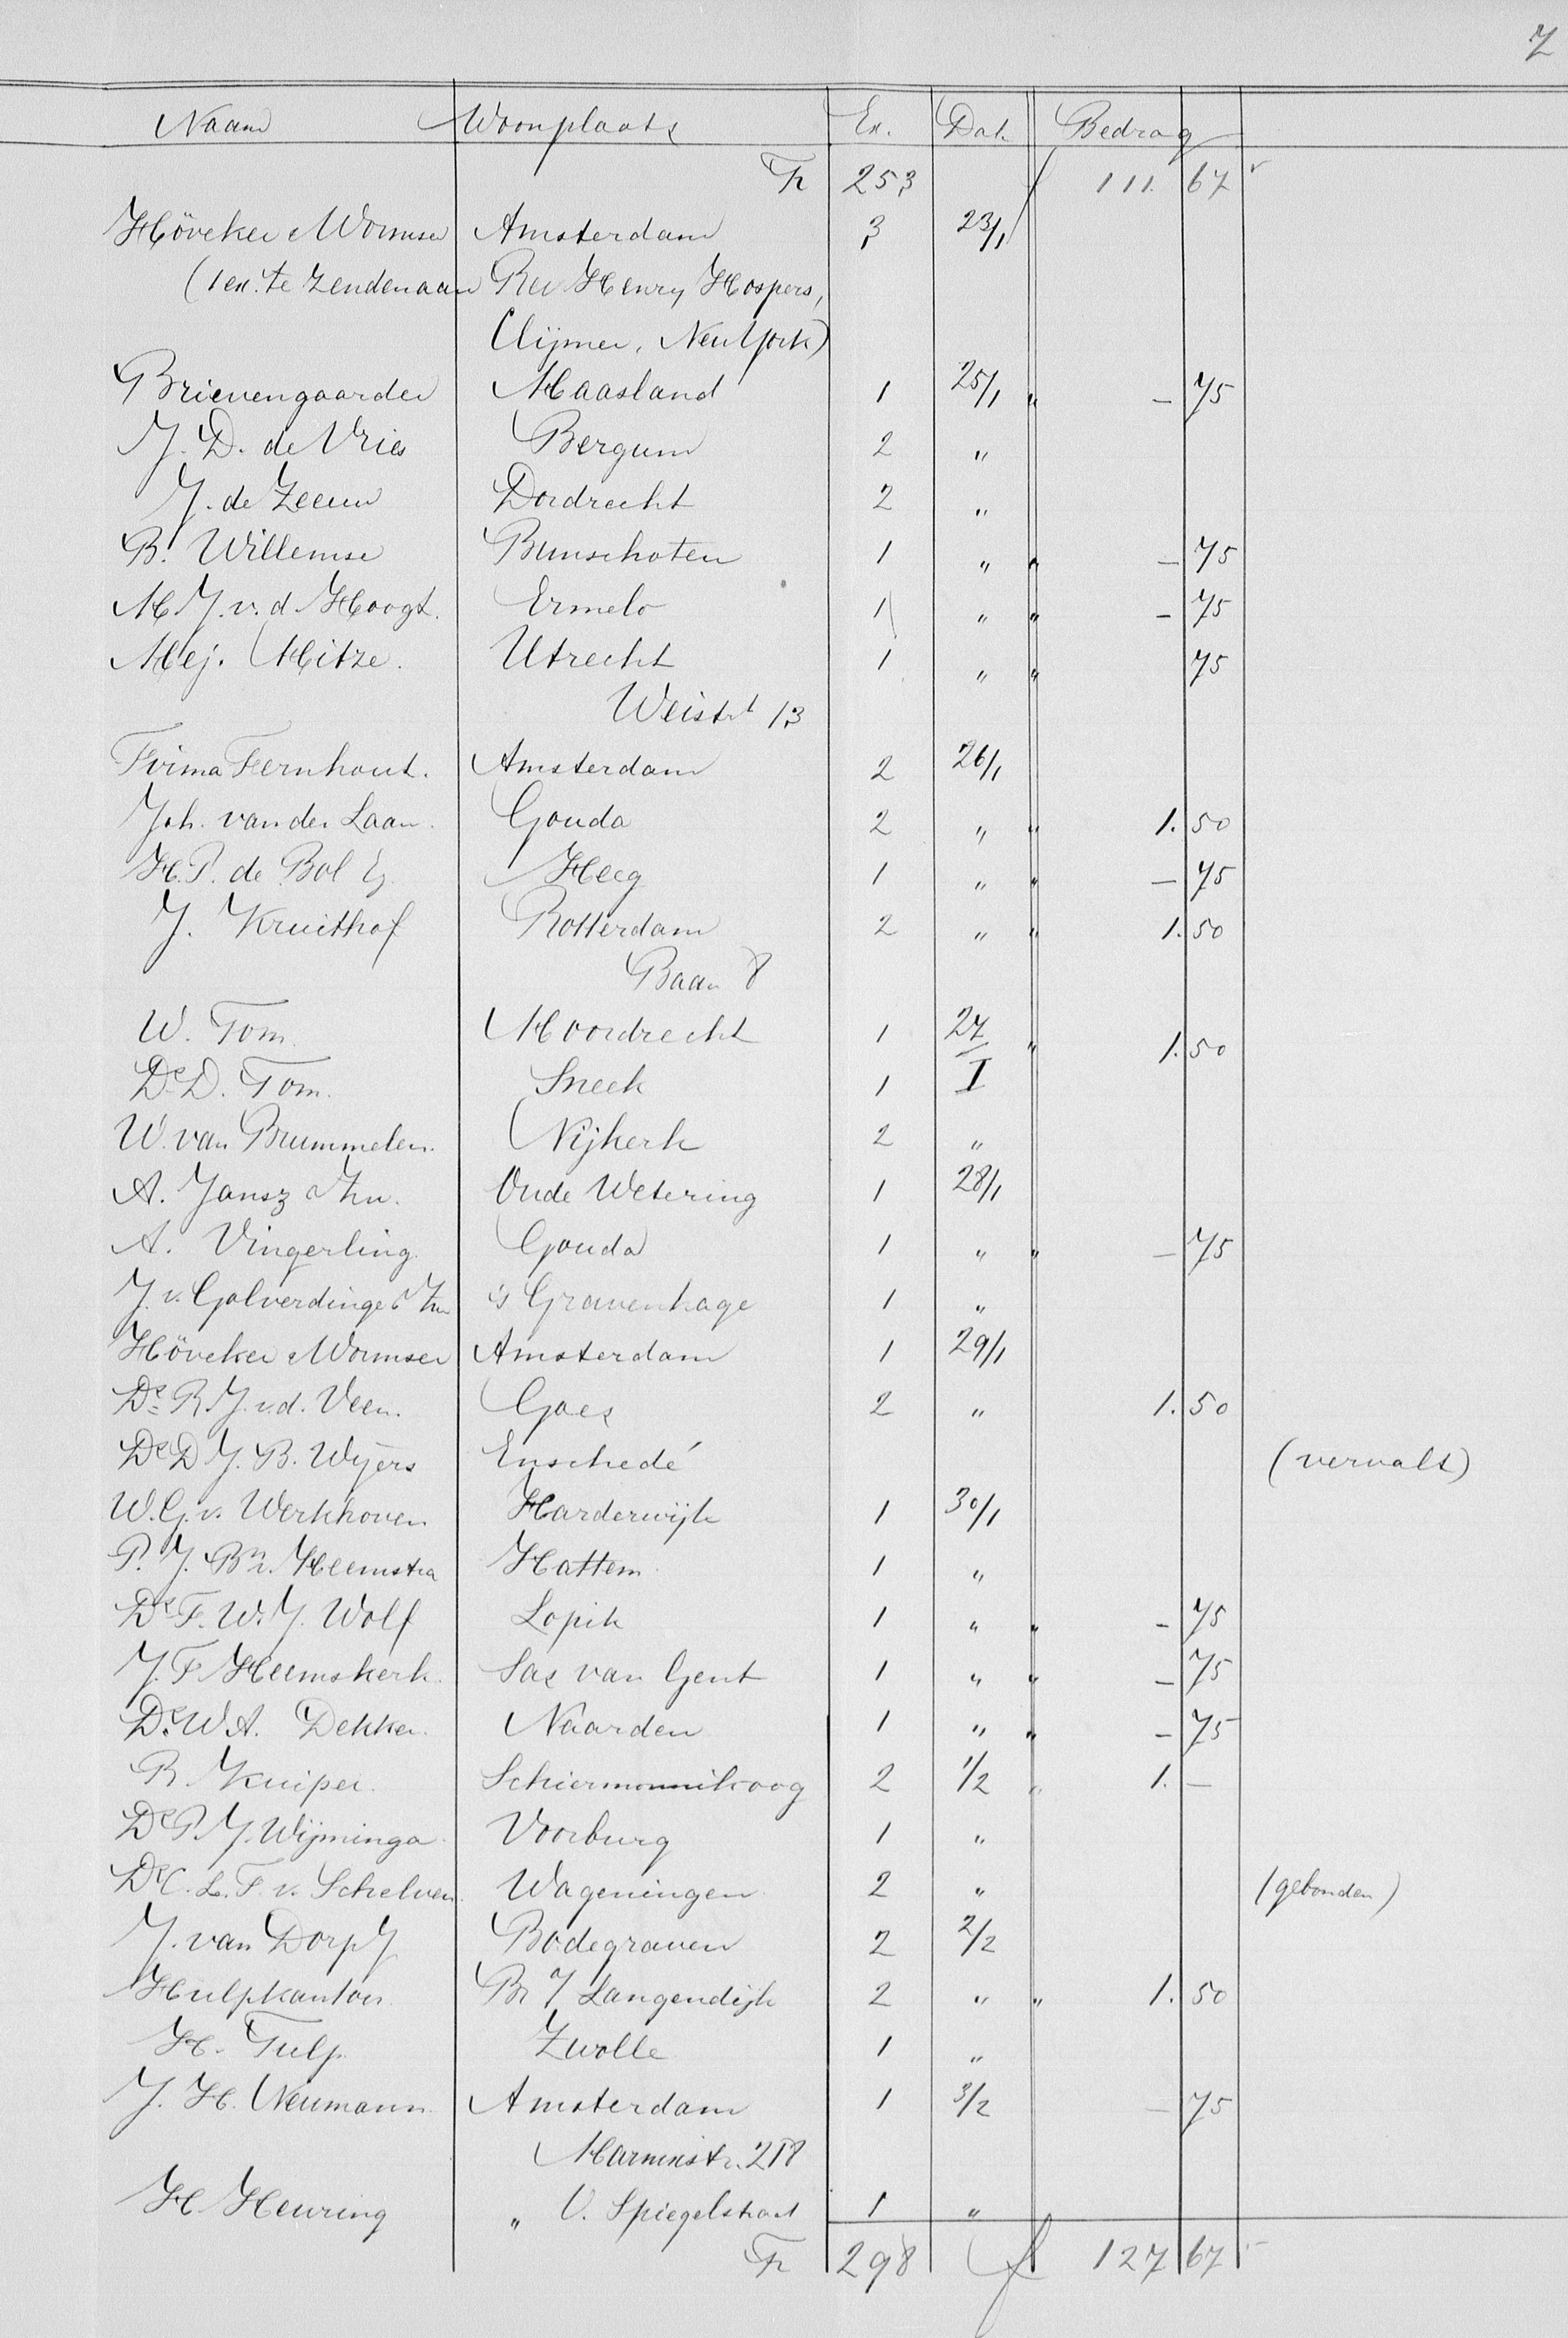 7
Naam Woonplaats Ex. Dat. Bedrag
Tr 253 f 111. 67
Höveker & Wormser Amsterdam 3 23/1
(1 ex. te zenden aan Rev Henry Hospers,
Clijmer, New York)
Brievengaarder Maasland 1 25/1 " - 75
J. D. de Vries Bergum 2 "
J. de Zeeuw Dordrecht 2 "
B. Willemse Bunschoten 1 " " - 75
M J. v. d. Hoogt. Ermelo 1 " " - 75
Mej. Mitze. Utrecht 1 " " 75
Weistrt 13
Firma Fernhout. Amsterdam 2 26/1
Joh. van der Laan. Gouda 2 " " 1. 50
H. P. de Bol Heeg 1 " " - 75
J. Kruithof Rotterdam 2 " " 1. 50
Baan 8
W. Tom. Moordrecht 1 27/I " 1. 50
Ds D. Tom. Sneek 1
W. van Brummelen. Nijkerk 2 "
A. Jansz Jzn. Oude Wetering 1 28/1
A. Vingerling Gouda 1 " " - 75
J. v. Golverdinge Jzn 's Gravenhage 1 "
Höveker & Wormser Amsterdam 1 29/1
Ds R. J. v.d. Veen. Goes 2 " 1. 50
Ds D J. B. Wijers Enschedé (vervalt)
W. G. v. Werkhoven Harderwijk 1 30/1
P. J. Bn v. Heemstra Hattem 1 "
Ds F. W. J. Wolf Lopik 1 " " - 75
J. F. Heemskerk Sas van Gent 1 " " - 75
Ds W A. Dekker. Naarden 1 " " - 75
R Kuiper. Schiermonnikoog 2 1/2 " 1. -
Ds P. J. Wijminga Voorburg 1 "
Ds C. L. F. v. Schelven. Wageningen 2 " (gebonden)
J. van Dorp J Bodegraven 2 2/2
Hulpkantoor Br / Langendijk 2 " " 1. 50
H. Tulp Zwolle 1 "
J. H. Neumann Amsterdam 1 3/2 - 75
Marnixstr. 218
H Heuring " V. Spiegelstraat 1 "
Tr 298 f 127 67